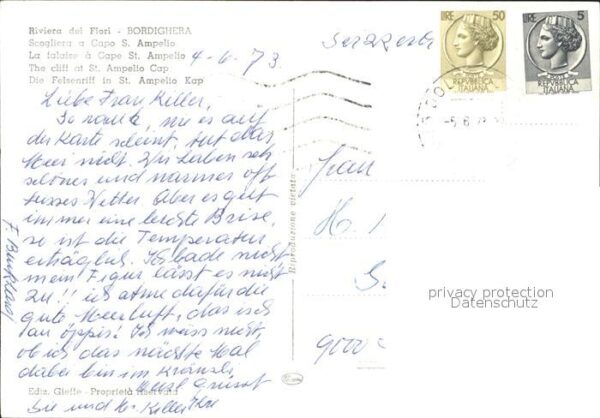 Riviera dei Fiori - BORDIGHERA
Scogliera a Capo S. Ampelio
La falaise à Cape St. Ampelio
The cliff at St. Ampelio Cap
Die Felsenriff in St. Ampelio Kap
4-6.73.
LIRE 50
REPUBBLICA
ITALIANA
LIRE 5
REPUBBLICA
ITALIANA
Liebe Frau Keller,
So rauh, wie es auf
der Karte scheint, tut das
Meer nicht. Wir haben sehr
schönes und warmes oft
Wetter. Aber es geht
immer eine leichte Brise,
so ist die Temperatur
erträglich. Ich bade nicht
mein Figur lässt es nicht
zu!! ich atme dafür die
gute Meerluft, das isch
au öppis! Ich weiss nicht,
ob ich das nächste Mal
dabei bin im Kränzli
grüsst
Sie und Hr. Keller Ihre
Riproduzione vietata
Frau
H.
9000
privacy protection
Datenschutz
Ediz. Gieffe - Proprietà Riservata